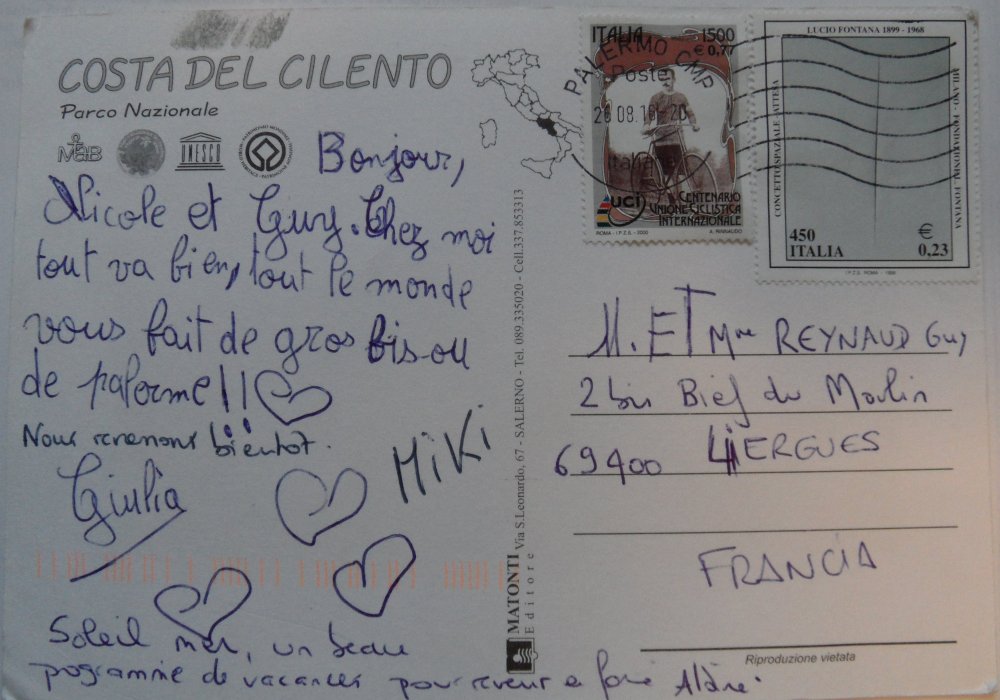 COSTA DEL CILENTO
Parco Nazionale
MAB
UNESCO
Bonjour,
Nicole et Guy. Chez moi
tout va bien, tout le monde
vous fait de gros bisou
de palerme!!
Nous revenons bientot.
MiKi
Giulia
Soleil mer, un beau
programme de vacances pour
MATONTI Editore Via S.Leonardo, 67 - SALERNO - Tel. 089.335020 - Cell.337.853313
ITALIA 1500
€ 0,77
PALERMO CMP
Poste
Italia
uci CENTENARIO
UNIONE CICLISTICA
INTERNAZIONALE
ROMA - I.P.Z.S. - 2000 A. RINNAUDO
LUCIO FONTANA 1899 - 1968
CONCETTO SPAZIALE - ATTESA
MILANO - FONDAZIONE L. FONTANA
450 €
ITALIA 0,23
I.P.Z.S. ROMA
M. ET Mme REYNAUD Guy
2 bis Bief du Moulin
69400 LiERGUES
FRANCIA
Riproduzione vietata